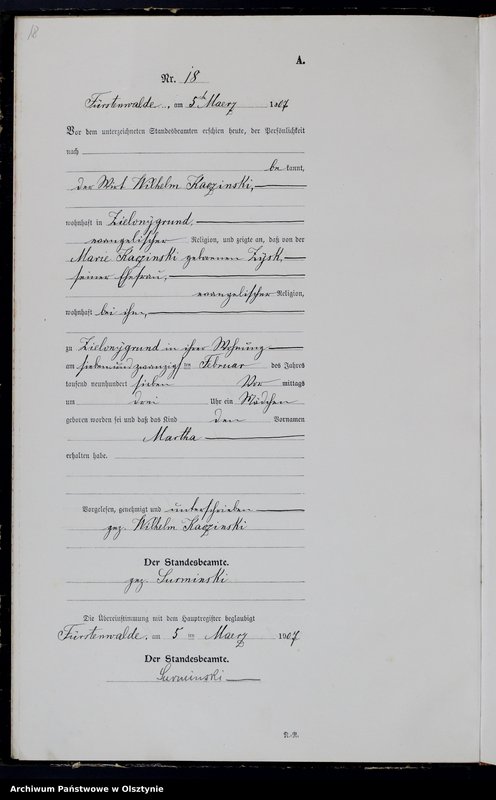 18
A.
Nr. 18
Fürstenwalde, am 5ten Maerz 1907
Vor dem unterzeichneten Standesbeamten erschien heute, der Persönlichkeit
nach
be kannt,
der Wirt Wilhelm Kaczinski,
wohnhaft in Zielonygrund,
evangelischer Religion, und zeigte an, daß von der
Marie Kaczinski geborenen Zysk,
seiner Ehefrau,
evangelischer Religion,
wohnhaft bei ihm,
zu Zielonygrund in ihrer Wohnung
am sieben und zwanzigsten Februar des Jahres
tausend neunhundert sieben Vor mittags
um drei Uhr ein Mädchen
geboren worden sei und daß das Kind den Vornamen
Martha
erhalten habe.
Vorgelesen, genehmigt und unterschrieben
gez. Wilhelm Kaczinski
Der Standesbeamte.
gez. Surminski
Die Übereinstimmung mit dem Hauptregister beglaubigt
Fürstenwalde, am 5 ten Maerz 1907
Der Standesbeamte.
Surminski
Archiwum Państwowe w Olsztynie